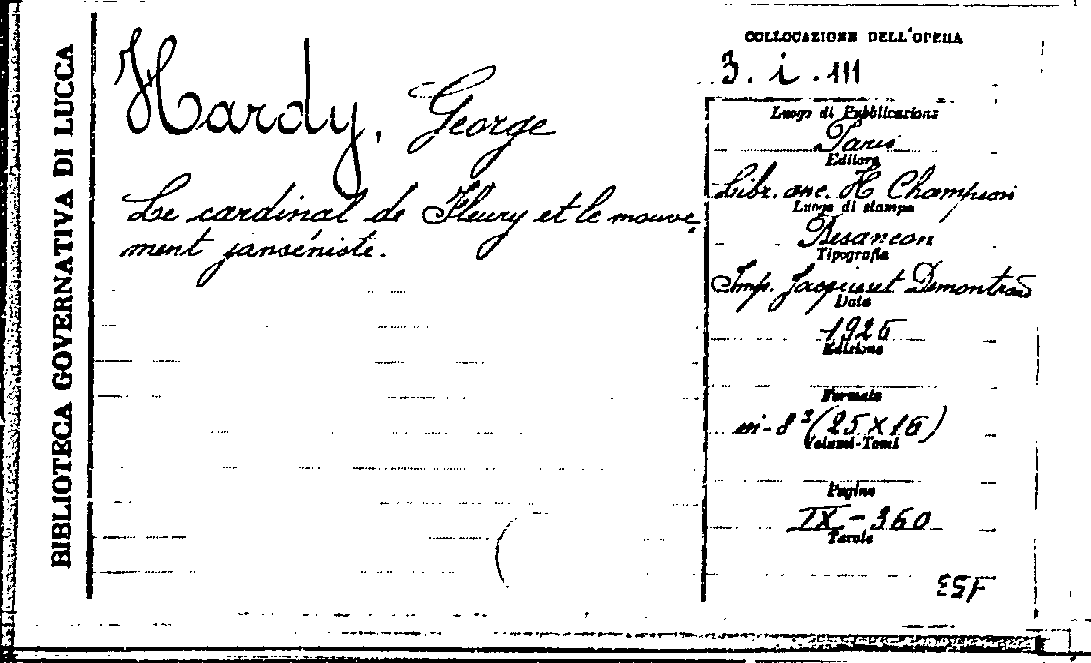 BIBLIOTECA GOVERNATIVA DI LUCCA
Hardy, George
Le cardinal de Fleury et le mouve-
ment janséniste.
COLLOCAZIONE DELL'OPERA
3. i. 111
Luogo di Pubblicazione
Paris
Editore
Libr. anc. H Champion
Luogo di stampa
Besançon
Tipografia
Imp. Jacques et Demontrond
Data
1925
Edizione
Formato
in-8° (25×16)
Volumi-Tomi
Pagine
IX-360
Tavole